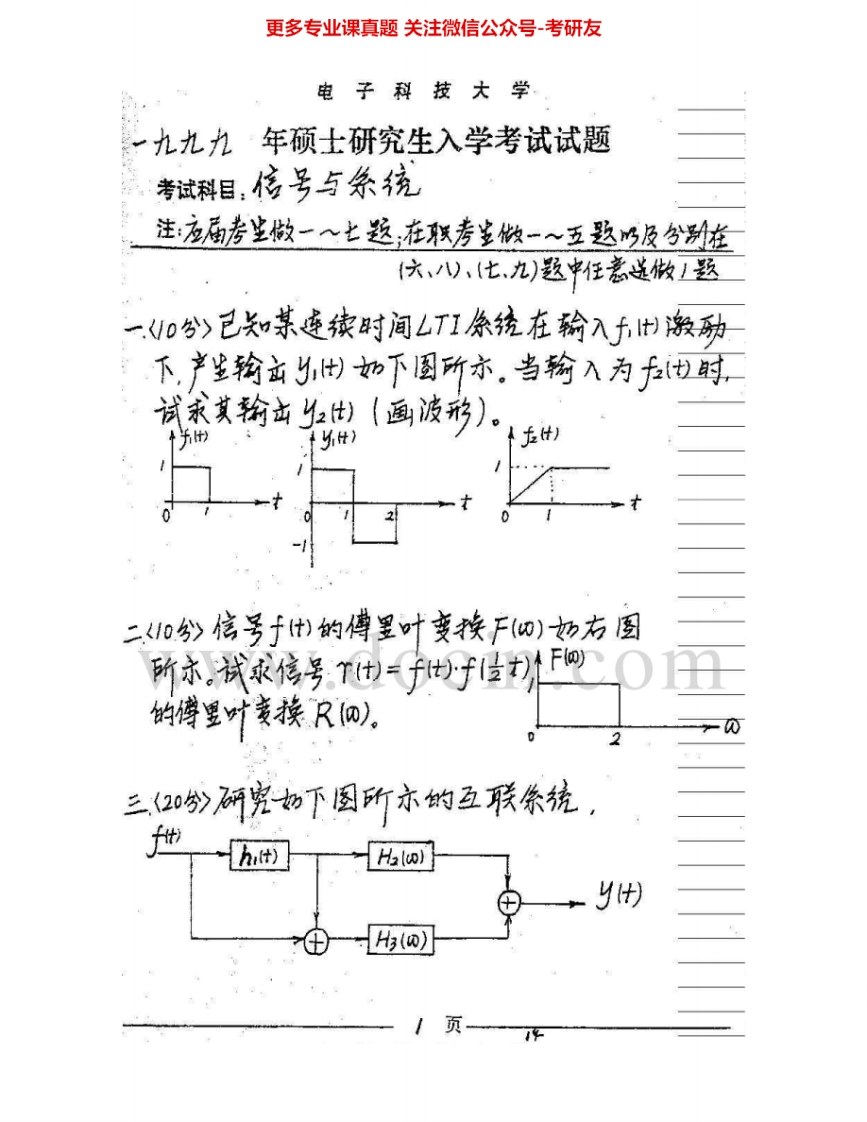 更多专业课真题 关注微信公众号-考研友
电子科技大学
一九九九 年硕士研究生入学考试试题
考试科目：信号与系统
注：应届考生做一～七题；在职考生做一～五题以及分别在
（六、八）、（七、九）题中任意选做1题
一.〈10分〉已知某连续时间LTI系统在输入f₁(t)激励
下，产生输出y₁(t)如下图所示。当输入为f₂(t)时，
试求其输出y₂(t)（画波形）。
f₁(t) y₁(t) f₂(t)
1 1 1
0 1 t 0 1 2 t 0 1 t
-1
二〈10分〉信号f(t)的傅里叶变换F(ω)如右图
所示。试求信号r(t)=f(t)·f(½t)
的傅里叶变换R(ω)。
F(ω)
1
0 2 ω
www.docin.com
三.〈20分〉研究如下图所示的互联系统，
f(t)
h₁(t) H₂(ω)
+ y(t)
+ H₃(ω)
1 页
14